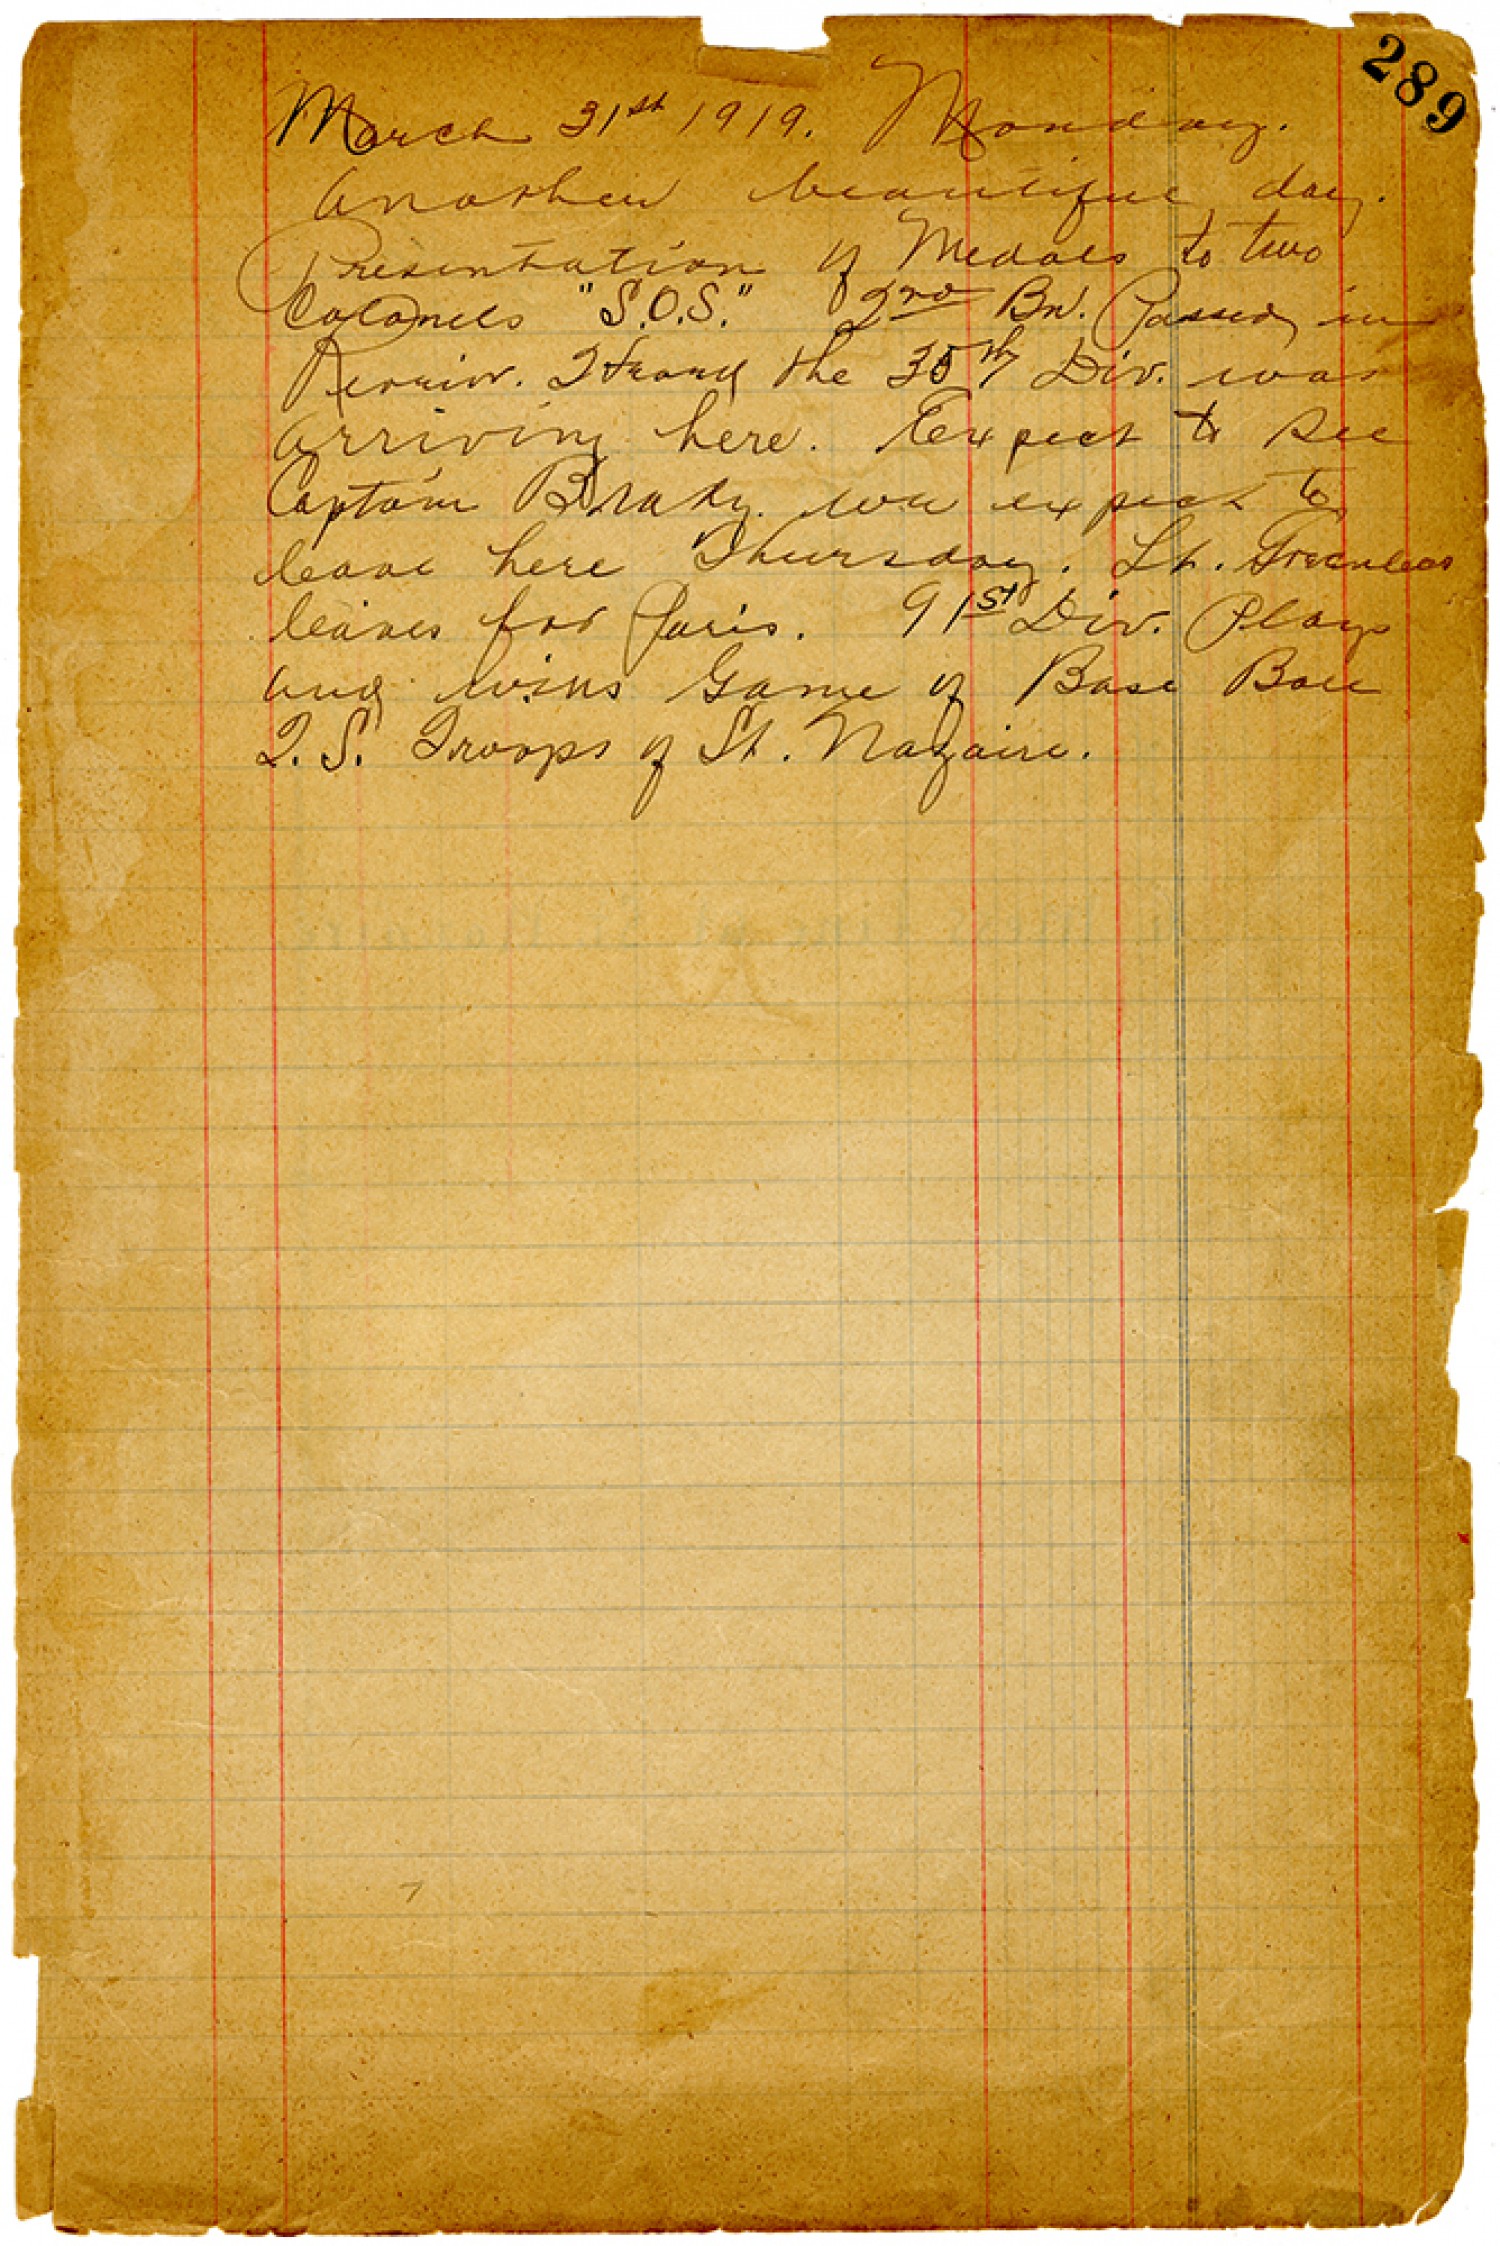 289
March 31st 1919. Monday.
Another beautiful day.
Presentation of Medals to two
Colonels "S.O.S." 2nd Bn. Passed in
Review. I Heard the 35th Div. was
arriving here. Expect to see
Captain Brady. we expect to
leave here Thursday. Lt.
leaves for Paris. 91st Div. Plays
and wins Game of Base Ball
S. Troops of St. Nazaire.